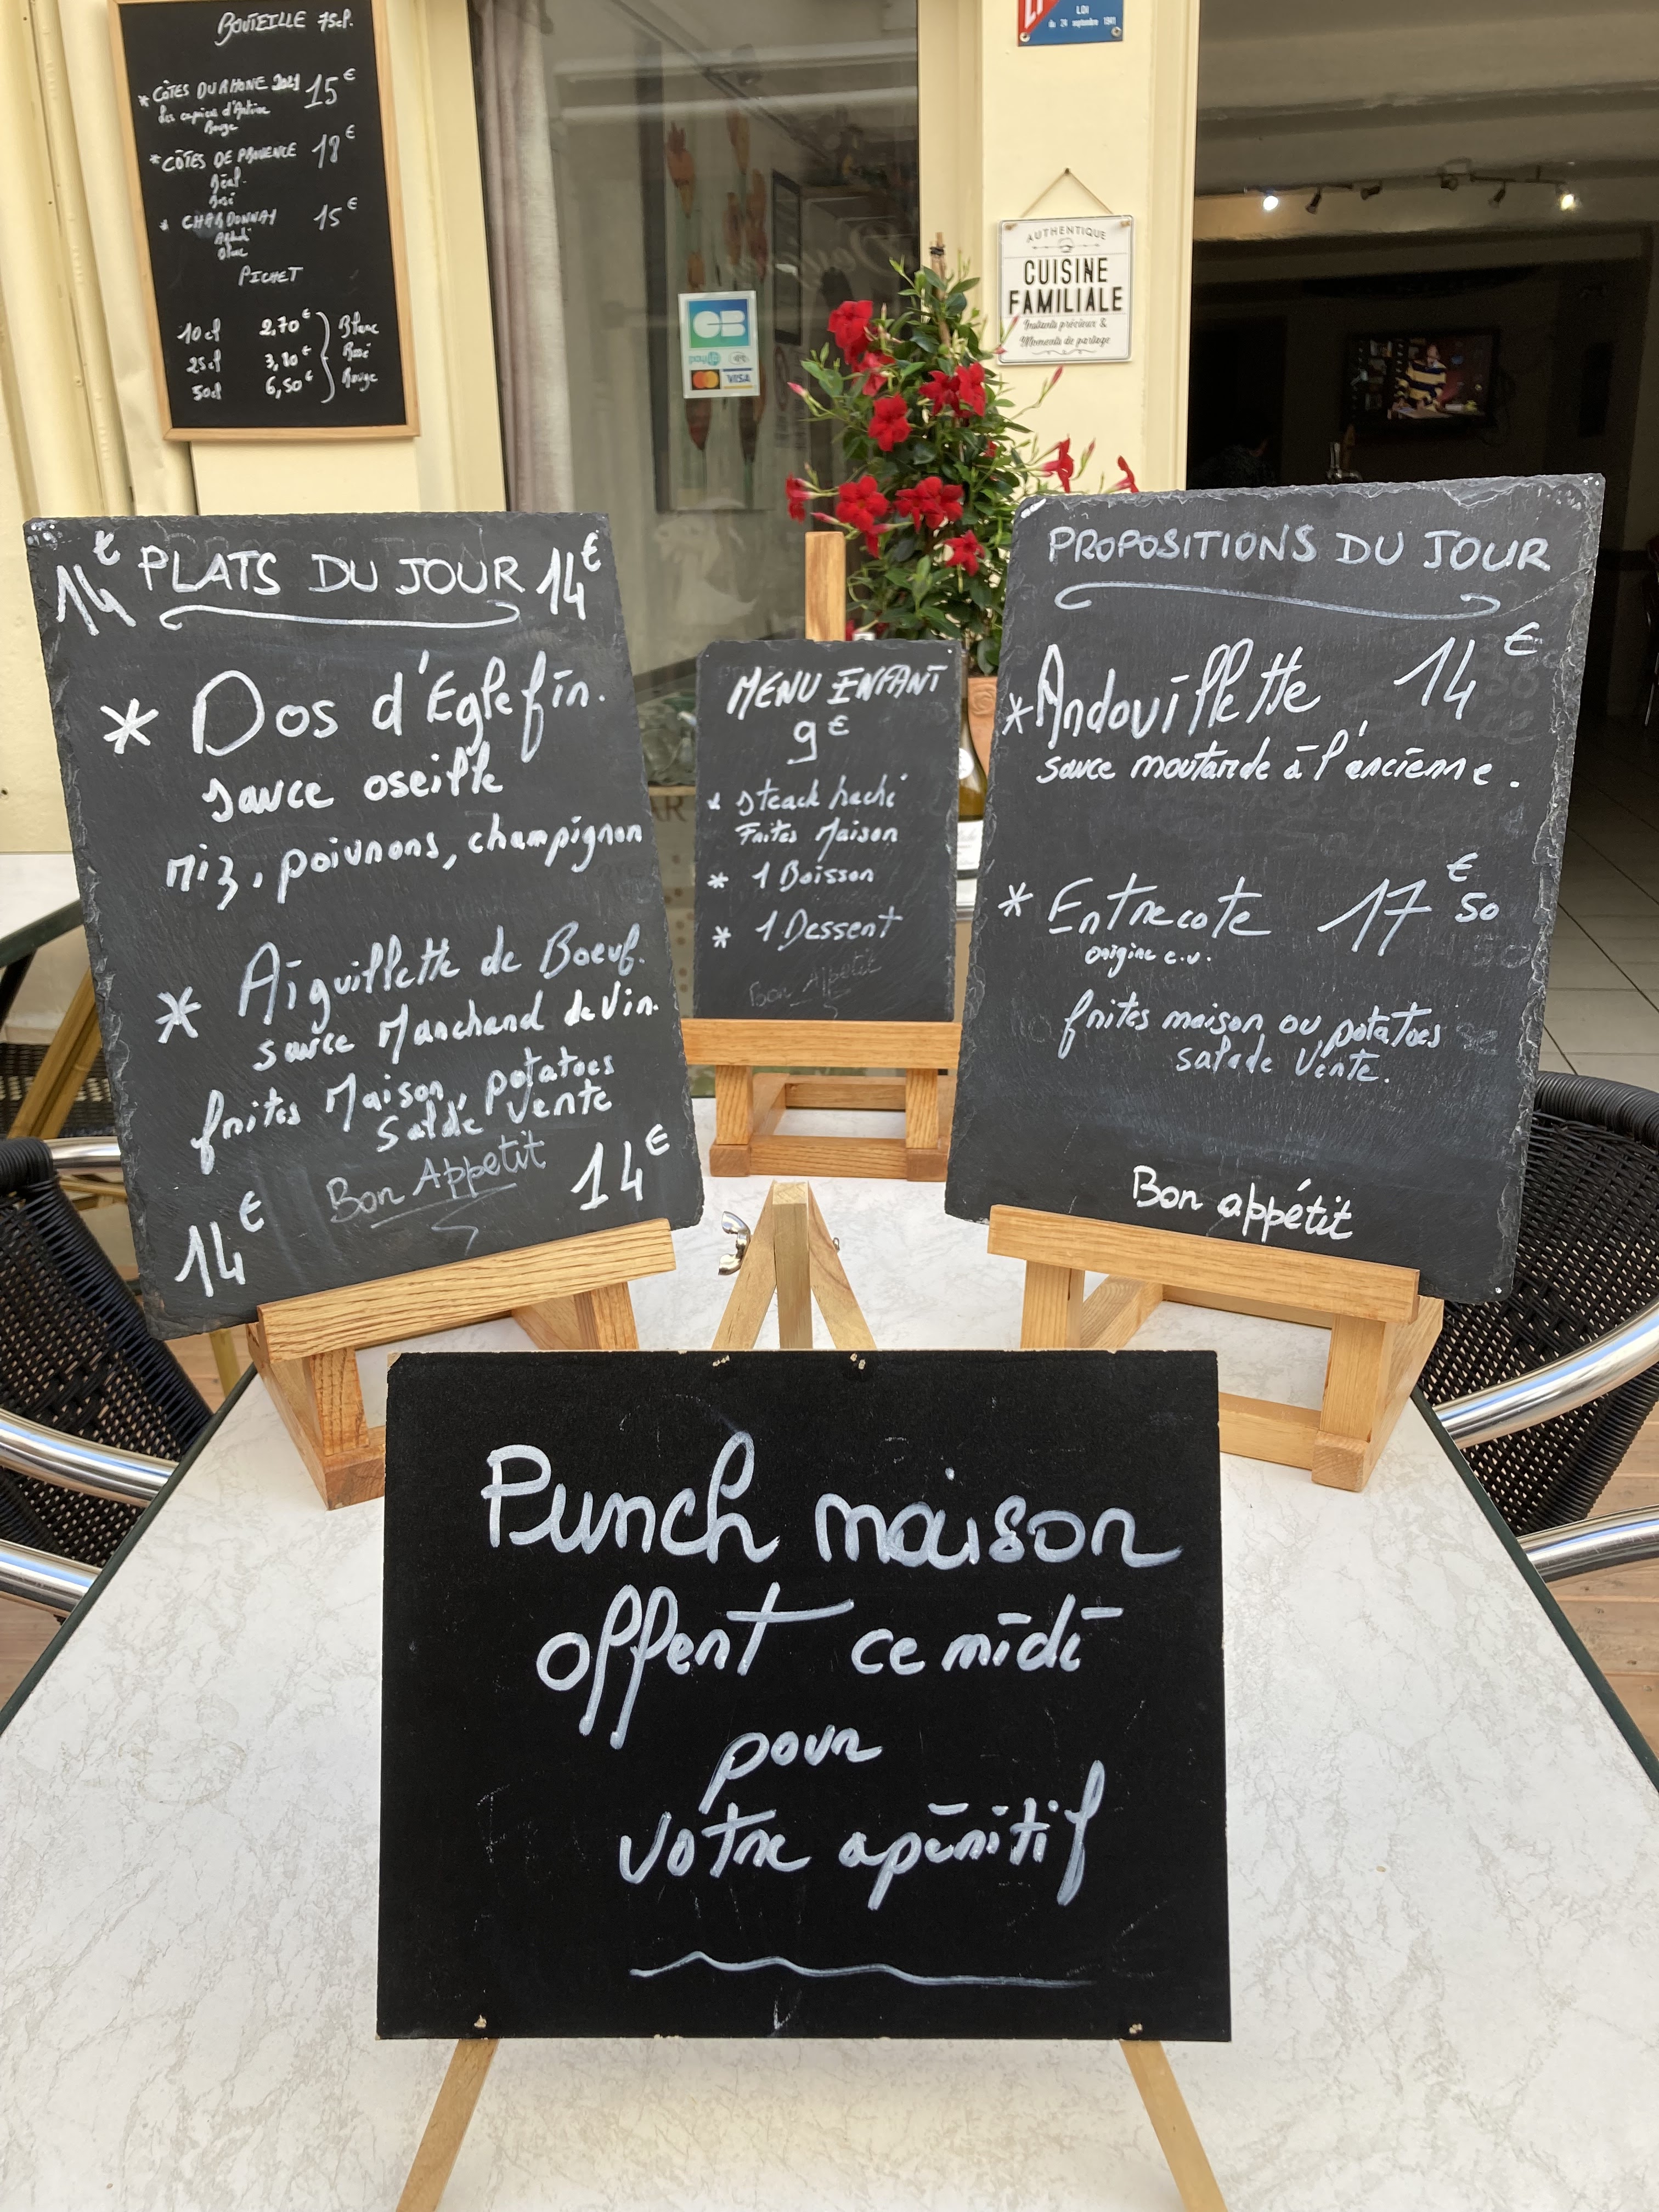 BOUTEILLE 75cl.
* CÔTES DU RHONE 2021 15€
Les caprices d'Antoine
Rouge
* CÔTES DE PROVENCE 18€
Rosé
* CHARDONNAY 15€
Blanc
PICHET
10cl 2,70€ Blanc
25cl 3,80€ Rosé
50cl 6,50€ Rouge
LOI
du 24 septembre 1941
AUTHENTIQUE
CUISINE
FAMILIALE
Instants précieux &
Moments de partage
CB
VISA
14€ PLATS DU JOUR 14€
* Dos d'Eglefin.
sauce oseille
riz, poivrons, champignon
* Aiguillette de Boeuf.
sauce Marchand de Vin.
frites Maison, potatoes
Salde verte
Bon Appétit
14€ 14€
MENU ENFANT
9€
* steack haché
Frites Maison
* 1 Boisson
* 1 Dessert
Bon Appétit
PROPOSITIONS DU JOUR
* Andouillette 14€
sauce moutarde à l'ancienne.
* Entrecote 17€50
origine e.u.
frites maison ou potatoes
salade verte.
Bon appétit
Punch maison
offert ce midi
pour
votre apéritif